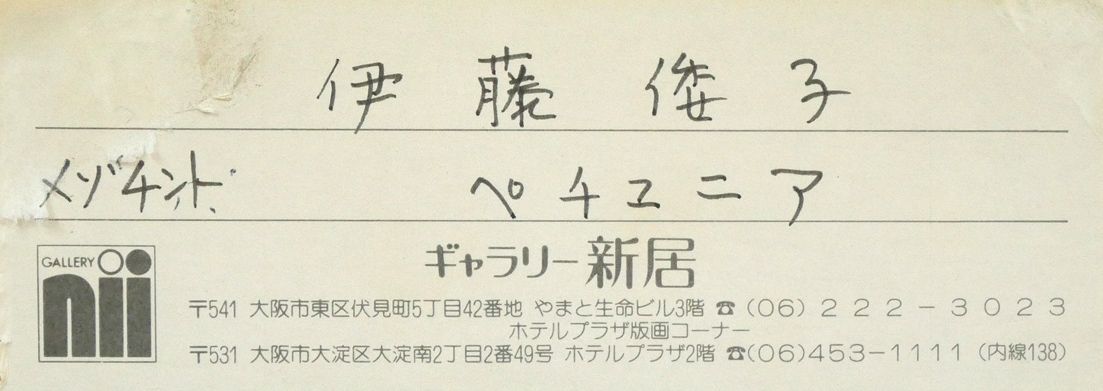 伊藤倭子
メゾチント ペチュニア
GALLERY nii
ギャラリー新居
〒541 大阪市東区伏見町5丁目42番地 やまと生命ビル3階 ☎(06)222-3023
ホテルプラザ版画コーナー
〒531 大阪市大淀区大淀南2丁目2番49号 ホテルプラザ2階 ☎(06)453-1111(内線138)